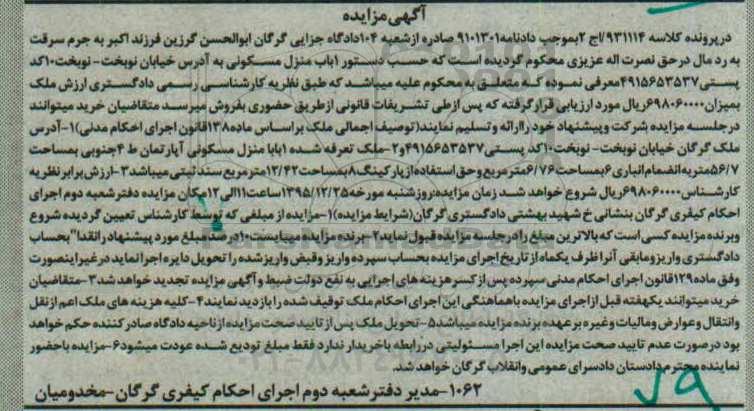 آگهی مزایده
درپرونده کلاسه ۹۳۱۱۱۴/اج ۲بموجب دادنامه۹۱۰۱۳۰۱ صادره ازشعبه ۱۰۴دادگاه جزایی گرگان ابوالحسن گرزین فرزند اکبر به جرم سرقت
به رد مال درحق نصرت اله عزیزی محکوم گردیده است که حسب دستور ۱باب منزل مسکونی به آدرس خیابان نوبخت - نوبخت۱۰کد
پستی۴۹۱۵۶۵۳۵۳۷معرفی نموده که متعلق به محکوم علیه میباشد که طبق نظریه کارشناسی رسمی دادگستری ارزش ملک
بمیزان۶۹۸۰۶۰۰۰۰ریال مورد ارزیابی قرارگرفته که پس ازطی تشریفات قانونی ازطریق حضوری بفروش میرسد متقاضیان خرید میتوانند
درجلسه مزایده شرکت وپیشنهاد خود راارائه وتسلیم نمایند(توصیف اجمالی ملک براساس ماده۱۳۸قانون اجرای احکام مدنی)۱-آدرس
ملک گرگان خیابان نوبخت- نوبخت۱۰کد پستی۴۹۱۵۶۵۳۵۳۷و۲-ملک تعرفه شده ۱بابا منزل مسکونی آپارتمان ط ۴جنوبی بمساحت
۵۶/۷متربه انضمام انباری ۶بمساحت۶/۷۶مترمربع وحق استفاده ازپارکینگ۸بمساحت۱۲/۴۲مترمربع سند ثبتی میباشد۳-ارزش برابر نظریه
کارشناس۶۹۸۰۶۰۰۰۰ریال شروع خواهد شد زمان مزایده:روزشنبه مورخه۱۳۹۵/۱۲/۲۵ساعت۱۱الی۱۲مکان مزایده دفترشعبه دوم اجرای
احکام کیفری گرگان بنشانی خ شهید بهشتی دادگستری گرگان(شرایط مزایده)۱-مزایده از مبلغی که توسط کارشناس تعیین گردیده شروع
وبرنده مزایده کسی است که بالاترین مبلغ رادرجلسه مزایده قبول نماید۲-برنده مزایده میبایست۱۰درصدمبلغ مورد پیشنهاد رانقدا"بحساب
دادگستری واریزومابقی آنراظرف یکماه از تاریخ اجرای مزایده بحساب سپرده واریز وقبض واریزشده را تحویل دایره اجرانماید درغیراینصورت
وفق ماده۱۲۹قانون اجرای احکام مدنی سپرده پس ازکسرهزینه های اجرایی به نفع دولت ضبط وآگهی مزایده تجدید خواهد شد۳-متقاضیان
خرید میتوانند یکهفته قبل ازاجرای مزایده باهماهنگی این اجرای احکام ملک توقیف شده را بازدید نمایند۴-کلیه هزینه های ملک اعم ازنقل
وانتقال وعوارض ومالیات وغیره برعهده برنده مزایده میباشد۵-تحویل ملک پس ازتایید صحت مزایده ازناحیه دادگاه صادرکننده حکم خواهد
بود درصورت عدم تایید صحت مزایده این اجرا مسئولیتی دررابطه باخریدار ندارد فقط مبلغ تودیع شده عودت میشود۶-مزایده باحضور
نماینده محترم دادستان دادسرای عمومی وانقلاب گرگان خواهد شد.
۱۰۶۲-مدیر دفترشعبه دوم اجرای احکام کیفری گرگان-مخدومیان
۷۹